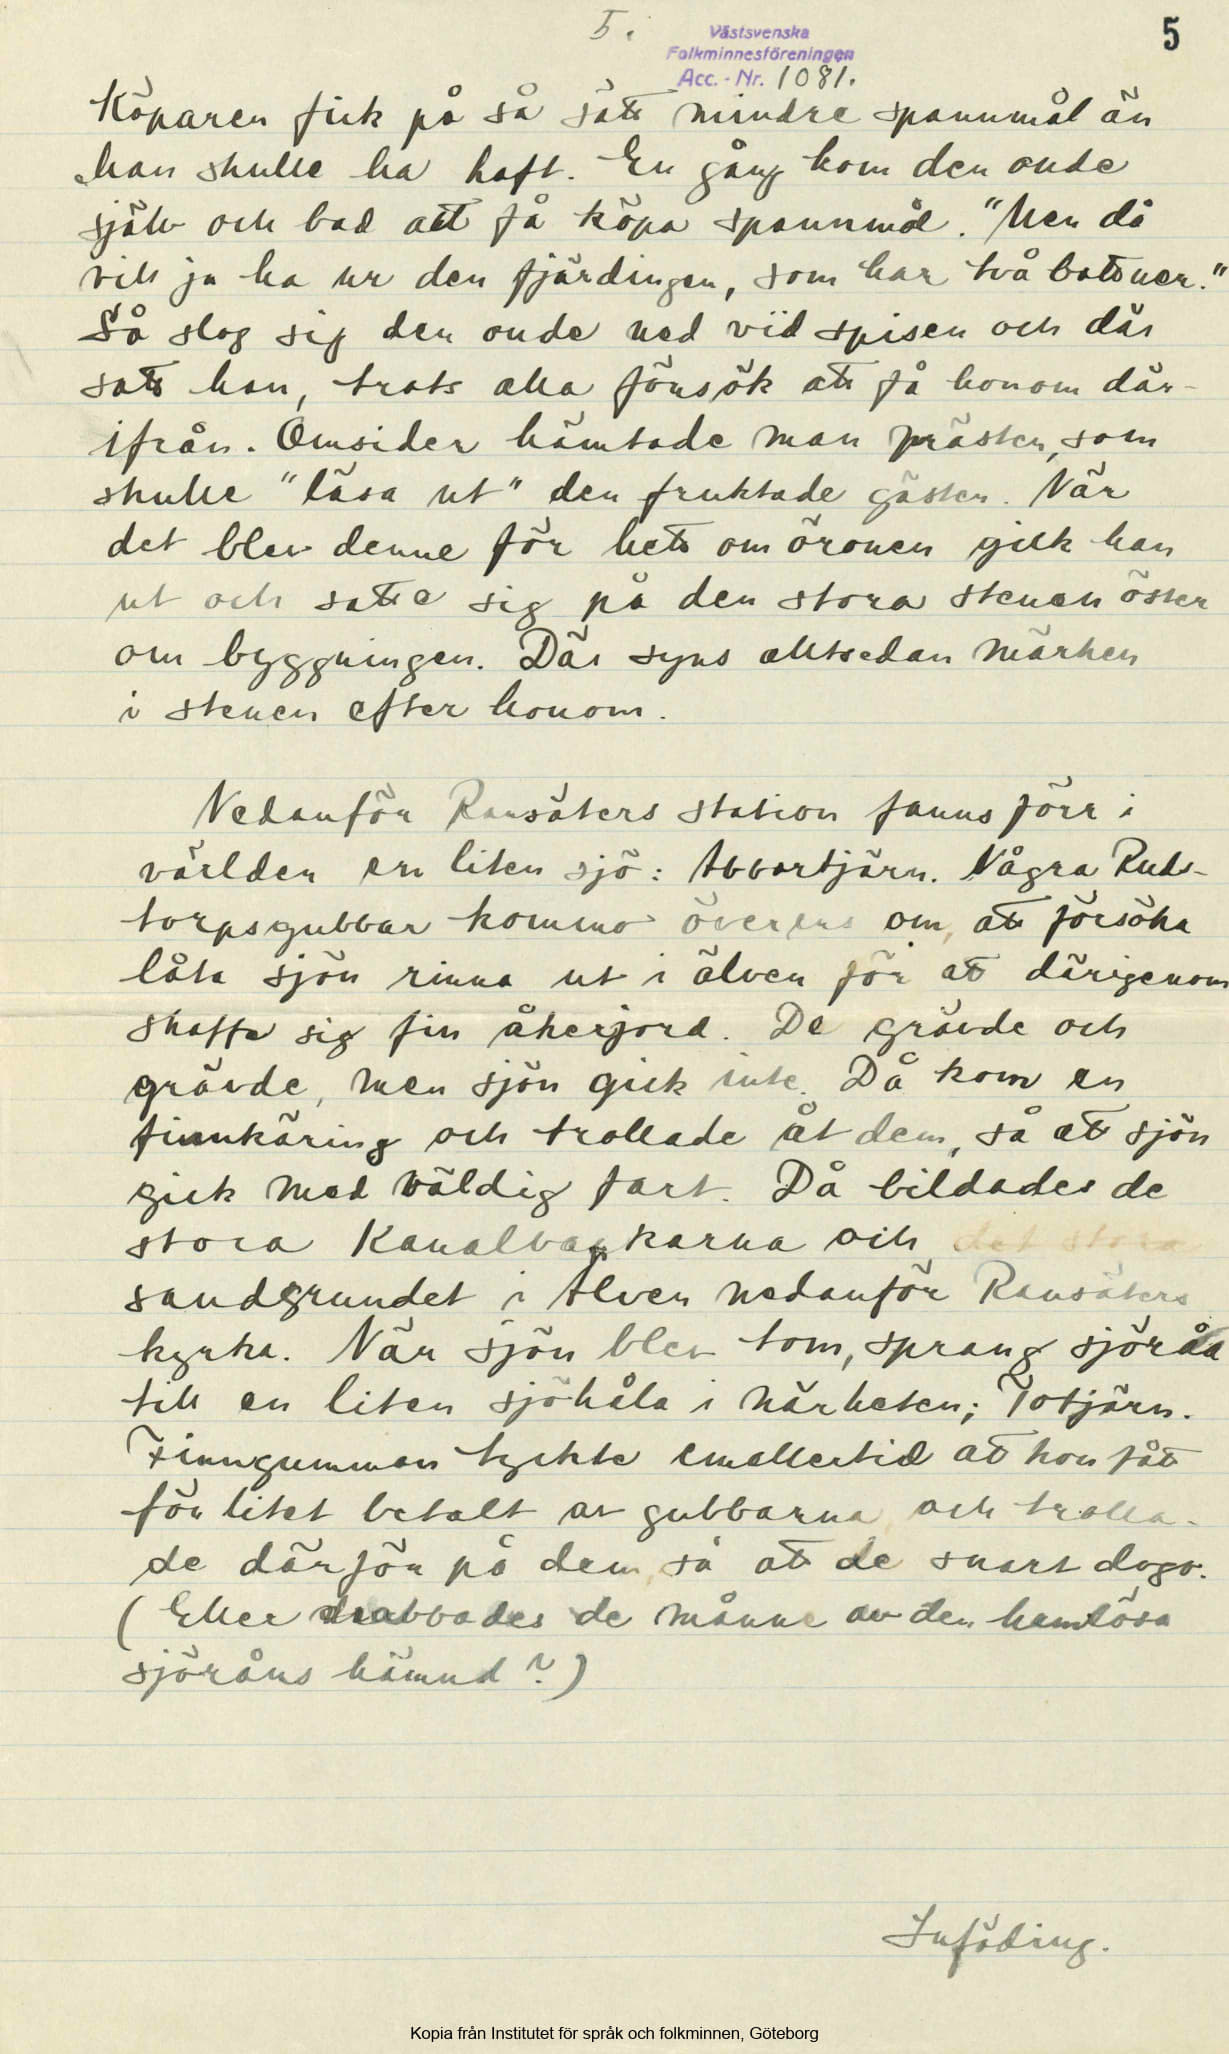 5.
5
Västsvenska
Folkminnesföreningen
Acc.-Nr. 1081.
Köparen fick på så sätt mindre spannmål än
han skulle ha haft. En gång kom den onde
själv och bad att få köpa spannmål. "Men då
vill ja ha ur den fjärdingen, som har två bottner."
Så slog sig den onde ned vid spisen och där
satt han, trots alla försök att få honom där-
ifrån. Omsider hämtade man prästen, som
skulle "läsa ut" den fruktade gästen. När
det blev denne för hett om öronen gick han
ut och satte sig på den stora stenen öster
om byggningen. Där syns alltsedan märken
i stenen efter honom.
Nedanför Ransäters station fanns förr i
världen en liten sjö: Abbortjärn. Några Rud-
torpsgubbar kommo överens om, att försöka
låta sjön rinna ut i älven för att därigenom
skaffa sig fin åkerjord. De grävde och
grävde, men sjön gick inte. Då kom en
finnkäring och trollade åt dem, så att sjön
gick med väldig fart. Då bildades de
stora Kanalbackarna och det stora
sandgrundet i Älven nedanför Ransäters
kyrka. När sjön blev tom, sprang sjöråa
till en liten sjöhåla i närheten; Totjärn.
Finngumman tyckte emellertid att hon fått
för litet betalt av gubbarna och trolla-
de därför på dem, så att de snart dogo.
(Eller drabbades de månne av den hemlösa
sjöråns hämnd?)
Inföding.
Kopia från Institutet för språk och folkminnen, Göteborg